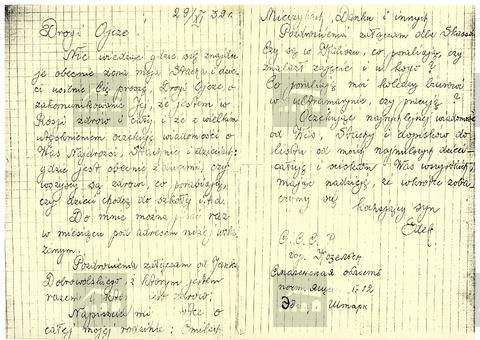 29/XI 39 r.
Drogi Ojcze.
Nie wiedząc gdzie się znajdu
je obecnie żona moja Stacha i dzie-
ci usilnie Cię proszę, Drogi Ojcze, o
zakomunikowanie Jej, że jestem w
Rosji zdrów i cały, i że z wielkim
utęsknieniem oczekuję wiadomości o
Was Najdrożsi, i dzieciach:
gdzie jest obecnie z dziećmi, czy
wszyscy są zdrowi, co porabiają,
czy dzieci chodzą do szkoły i.t.d.
Do mnie można pisać raz
w miesiącu pod adresem niżej wska
zanym.
Pozdrowienia załączam od Janka
Dobrowolskiego, z którym jestem
razem zdrów.
Napiszcie mi o
całej mojej rodzinie:
i innych
Pozdrowienia załączam dla
Czy są w co porabiają, czy
znalazł zajęcie i u kogo?
Co porabiają moi koledzy biurowi
w ultramarynie, czy pracują?
Oczekując najrychlej wiadomości
od Was, i dopisków do
listu od moich najmilszych dzieci
całuję i ściskam Was wszystkich,
mając nadzieję, że wkrótce zoba
czymy się kochający syn
Edek
С.С.С.Р
гор. Козельск
Смоленская область
почт. ящик 12
Штарк